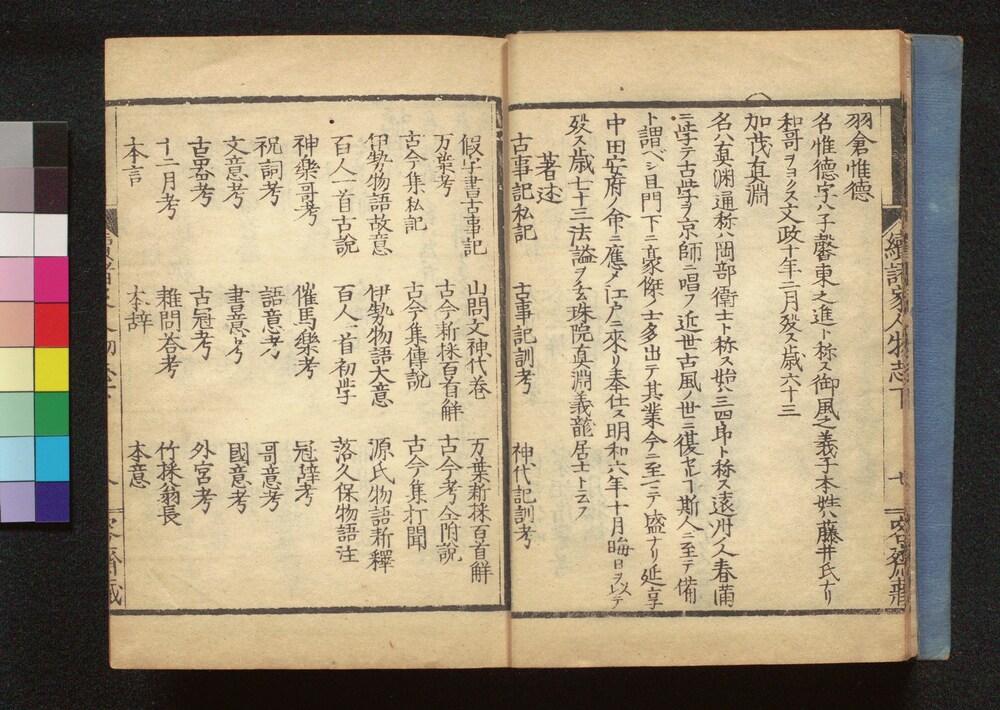 羽倉惟德
名惟德字ハ子馨東之進ト称ス御風之義子本姓ハ藤井氏ナリ
和哥ヲヨクス文政十年二月歿ス歳六十三
加茂真淵
名ハ真渕通称ハ岡部衛士ト称ス始ハ三四郎ト称ス遠州ノ人春満
ニ学テ古学ヲ京師ニ唱フ近世古風ノ世ニ復セシヿ斯人ニ至テ備
ト謂ベシ且門下ニ豪傑ノ士多出テ其業今ニ至マテ盛ナリ延享
中田安府ノ命ニ應メ江户ニ來リ奉仕ス明和六年十月晦日ヲ以テ
歿ス歳七十三法謚ヲ玄珠院真淵義龍居士ト云フ
著述
古事記私記 古事記訓考 神代記訓考
續諸家人物志下
七
假字書古事記 山問文神代卷 万葉新採百首解
万葉考 古今新採百首解 古今考全附説
古今集私記 古今集傳説 古今集打聞
伊勢物語故意 伊勢物語大意 源氏物語新釋
百人一首古説 百人一首初学 落久保物語注
神樂哥考 催馬樂考 冠辞考
祝詞考 語意考 哥意考
文意考 書意考 國意考
古器考 古冠考 外宮考
十二月考 雜問荅考 竹採翁長
本言 本辞 本意